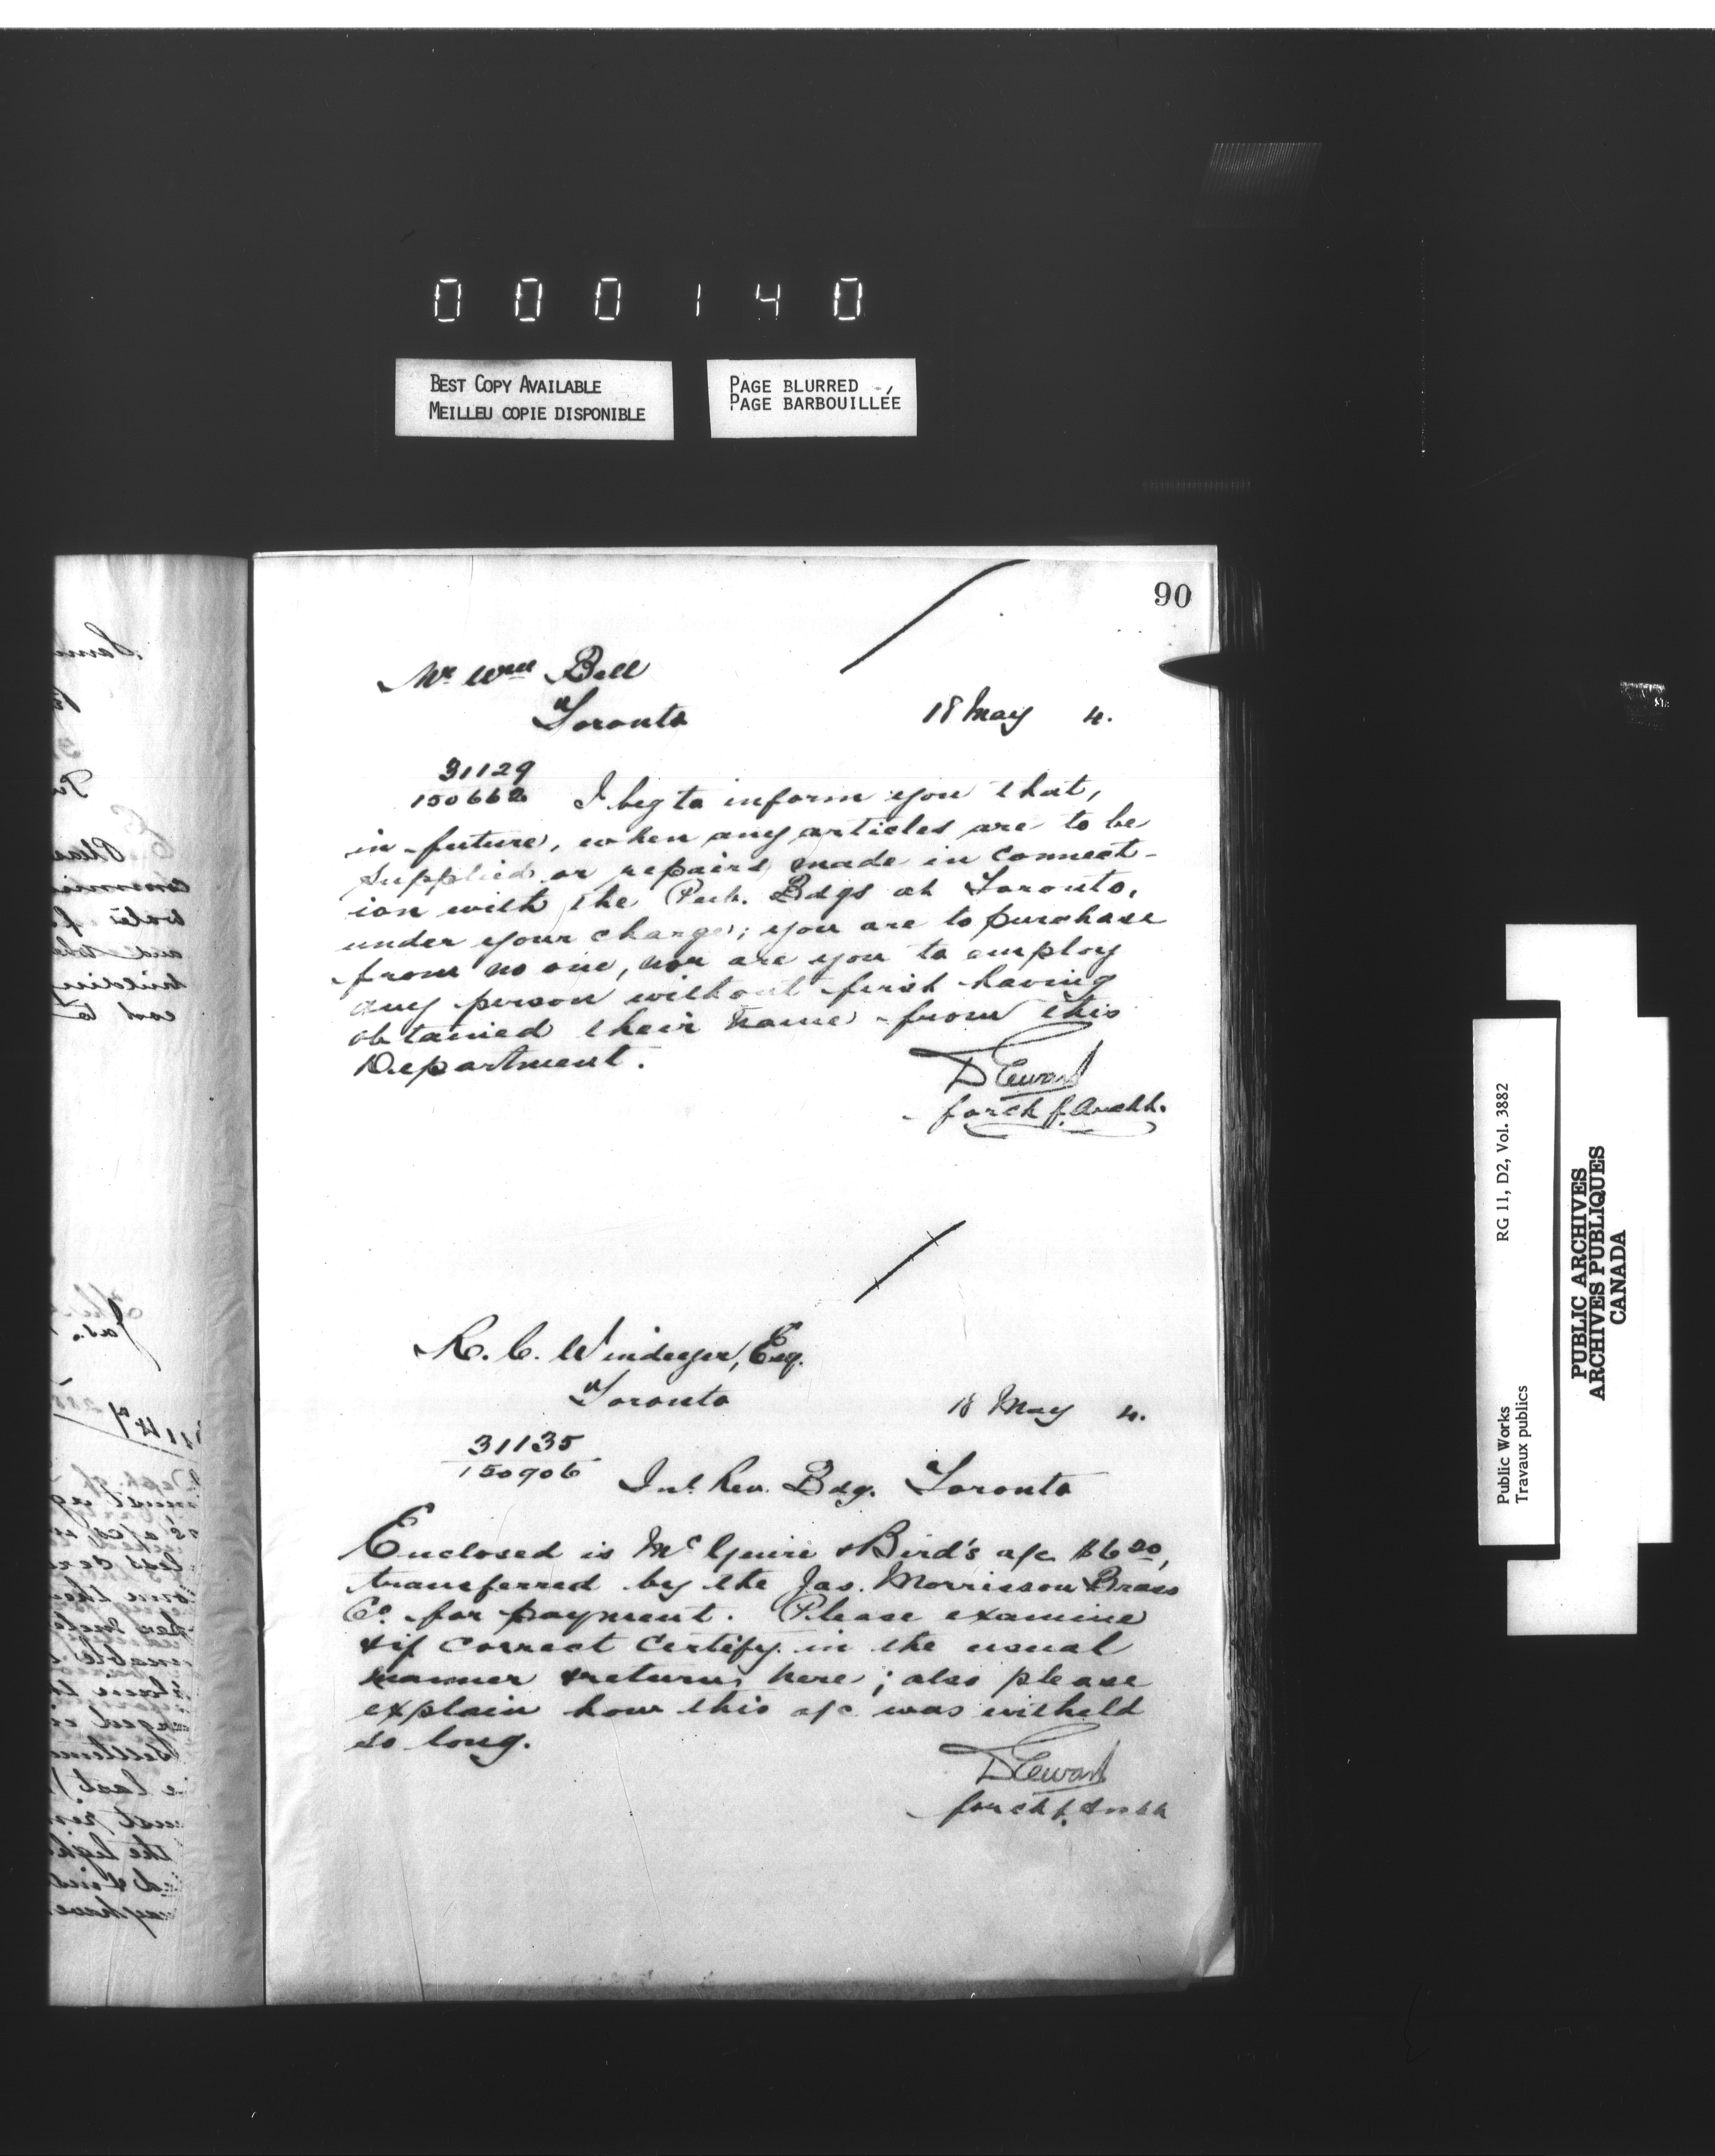 000140
BEST COPY AVAILABLE
MEILLEU COPIE DISPONIBLE
PAGE BLURRED
PAGE BARBOUILLÉE
90
Mr Wm Bell
Toronto
18 May 4.
31129
150662 I beg to inform you that,
in future, when any articles are to be
supplied or repairs made in connect-
ion with the Pub. Bdgs at Toronto,
under your charge; you are to purchase
from no one, nor are you to employ
any person without first having
obtained their name from this
Department.
D Ewart
for ch f. Archt.
R. C. Windeyer, Esq.
Toronto
18 May 4.
31135
150906
Int. Rev. Bdg. Toronto
Enclosed is McGuire & Bird's a/c $6 20,
transferred by the Jas. Morrisson Brass
Co. for payment. Please examine
& if correct certify in the usual
manner & return here; also please
explain how this a/c was witheld
so long.
D Ewart
for ch f. Archt
Public Works
Travaux publics
RG 11, D2, Vol. 3882
PUBLIC ARCHIVES
ARCHIVES PUBLIQUES
CANADA